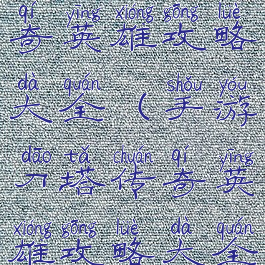 qí yīng xióng gōng lüè
奇英雄攻略
dà quán shǒu yóu
大全(手游
dāo tǎ chuán qí yīng
刀塔传奇英
xióng gōng lüè dà quán
雄攻略大全